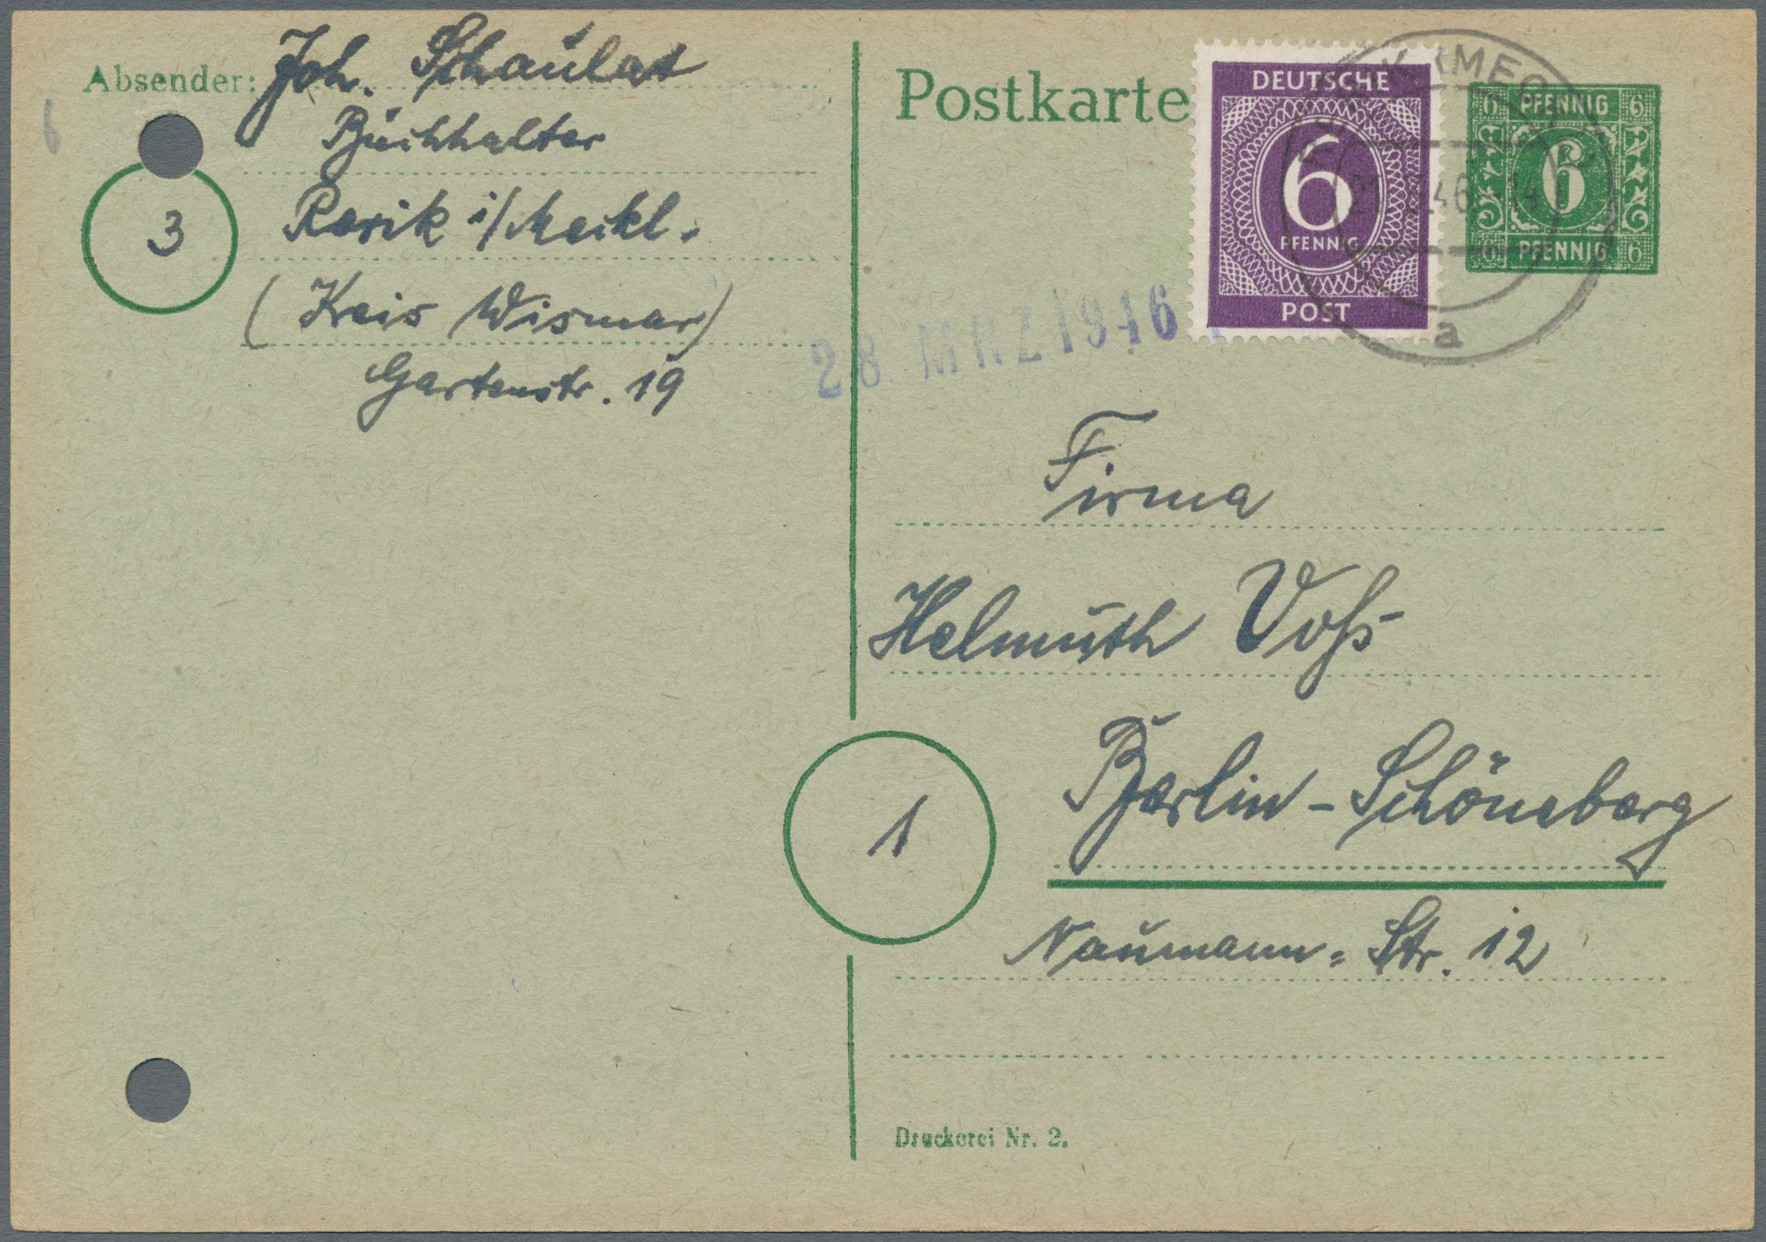 Absender: Joh. Schaulat
Buchhalter
3
Rerik i/Meckl.
(Kreis Wismar)
Gartenstr. 19
Postkarte
DEUTSCHE
6
PFENNIG
POST
6 PFENNIG 6
6
6 PFENNIG 6
a
28 MRZ 1946
Firma
Helmuth Voß
1
Berlin-Schöneberg
Naumann=Str. 12
Druckerei Nr. 2.